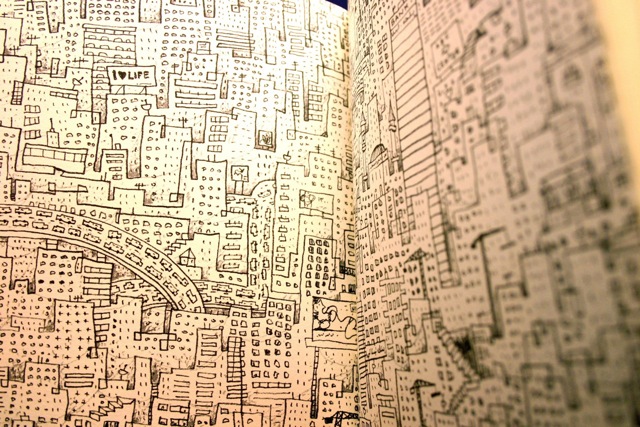 I ♥ LIFE